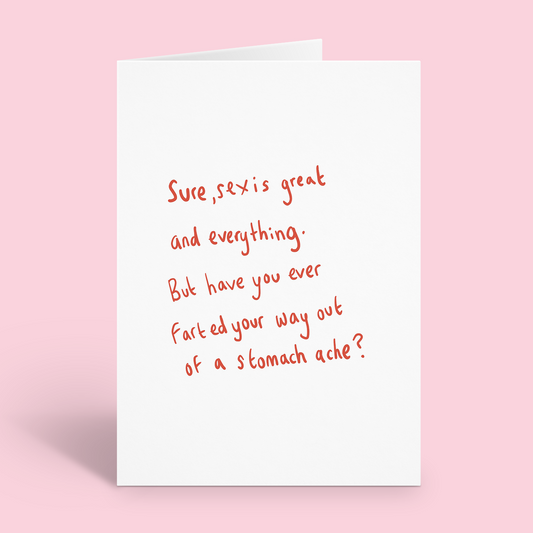 Sure, sex is great
and everything.
But have you ever
farted your way out
of a stomach ache?